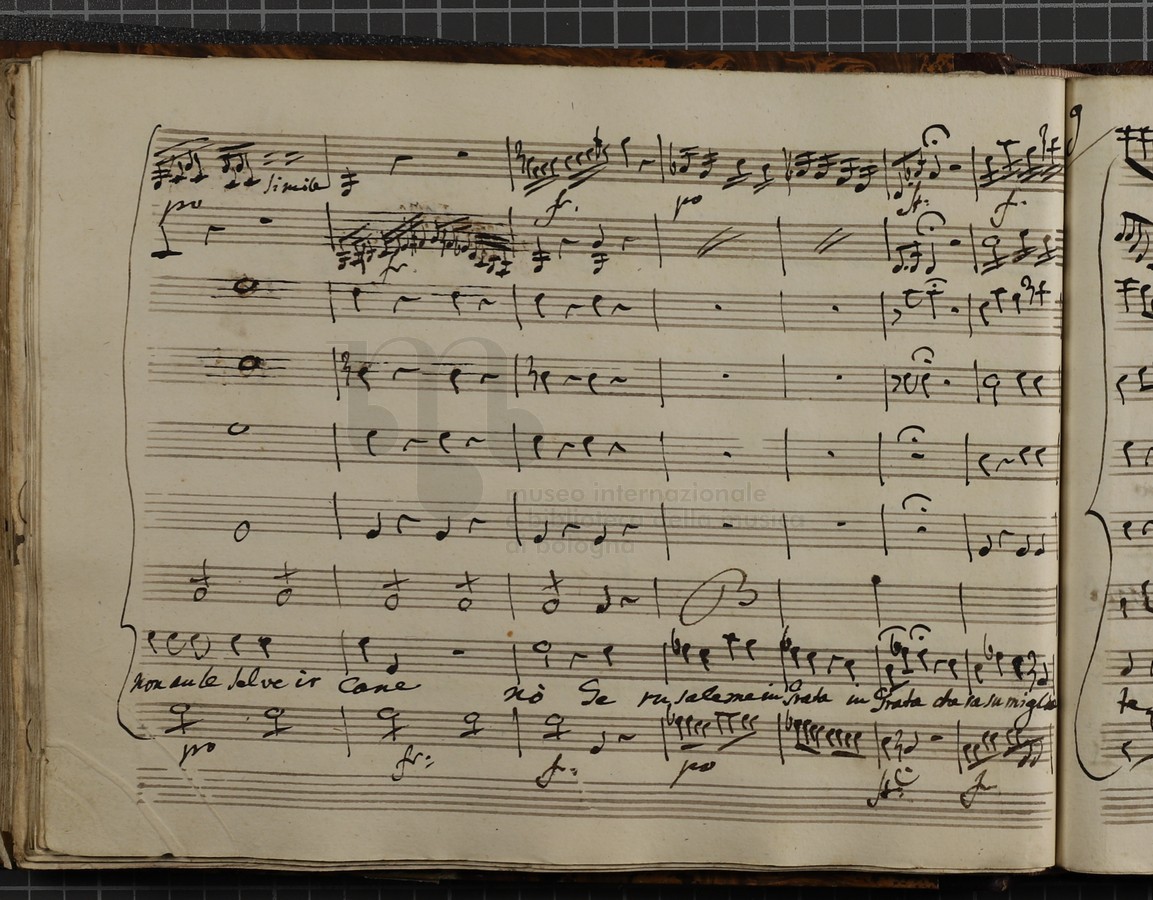 simile
po
fr.
po
fr:
f.
fr
museo internazionale
e biblioteca della musica
di bologna
non an le selve ir cane nò Ge ru salemme in grata in grata che
po
fr:
fr:
po
f